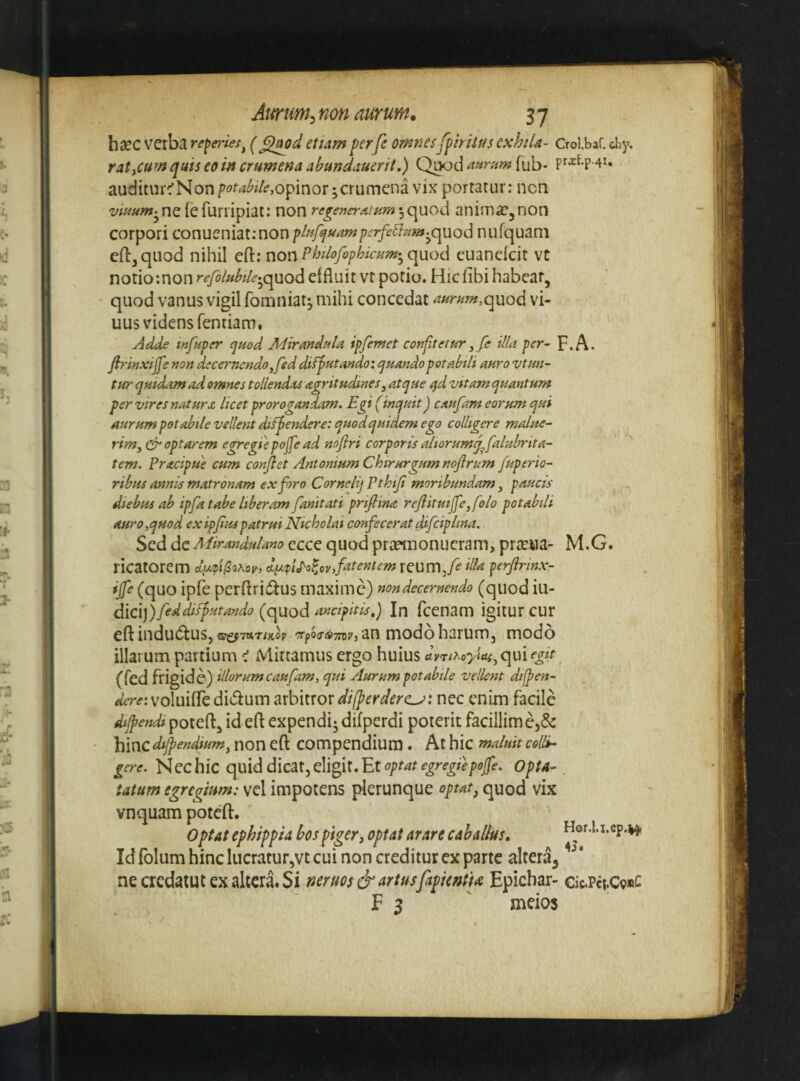 Aurum, non aurum. 37
hæc verba reperies, (Quod etiam per se omnes spiritus exhila- Crol.baſ. chy.
rat, cum quis eo in crumena abundauerit.) Quod aurum ſub- præf.p.41.
auditur? Non potabile, opinor; crumenâ vix portatur: non
viuum; ne ſe ſurripiat: non regeneratum; quod animæ, non
corpori conueniat: non pluſquam perfectum; quod nuſquam
eſt, quod nihil eſt: non Philoſophicum; quod euaneſcit vt
notio: non reſolubile; quod effluit vt potio. Hic ſibi habeat,
quod vanus vigil ſomniat; mihi concedat aurum, quod vi-
uus videns ſentiam.
Adde inſuper quod Mirandula ipſemet confitetur, ſe illa per- F.A.
ſtrinxiſſe non decernendo, ſed diſputando: quando potabili auro vtun-
tur quidam ad omnes tollendas ægritudines, atque ad vitam quantum
per vires naturæ licet prorogandam. Egi (inquit) cauſam eorum qui
aurum potabile vellent diſpendere: quod quidem ego colligere malue-
rim, & optarem egregiè poſſe ad noſtri corporis aliorumq; ſalubrita-
tem. Præcipuè cum conſtet Antonium Chirurgum noſtrum ſuperio-
ribus annis matronam ex foro Cornelij Pthiſi moribundam, paucis
diebus ab ipſa tabe liberam ſanitati priſtinæ reſtituiſſe, ſolo potabili
auro, quod ex ipſius patrui Nicholai confecerat diſciplina.
Sed de Mirandulano ecce quod præmonueram, præua- M.G.
ricatorem ἀμφίβολον, ἀμφίδοξον, fatentem reum, ſe illa perſtrinx-
iſſe (quo ipſe perſtrictus maximè) non decernendo (quod iu-
dicij) ſed diſputando (quod ancipitis.) In ſcenam igitur cur
eſt inductus, πρόσωπον, an modò harum, modò
illarum partium? Mittamus ergo huius ἀντιλογίας, qui egit
(ſed frigidè) illorum cauſam, qui Aurum potabile vellent diſpen-
dere: voluiſſe dictum arbitror diſperdere: nec enim facilè
diſpendi poteſt, id eſt expendi; diſperdi poterit facillimè, &
hinc diſpendium, non eſt compendium. At hic maluit colli-
gere. Nec hic quid dicat, eligit. Et optat egregiè poſſe. Opta-
tatum egregium: vel impotens plerunque optat, quod vix
vnquam poteſt.
Optat ephippia bos piger, optat arare caballus. Hor.l.1.ep.
43.
Id ſolum hinc lucratur, vt cui non creditur ex parte alterâ,
ne credatut ex alterâ. Si neruos & artus ſapientiæ Epichar- Cic.Pet.Conſ
F 3 meios